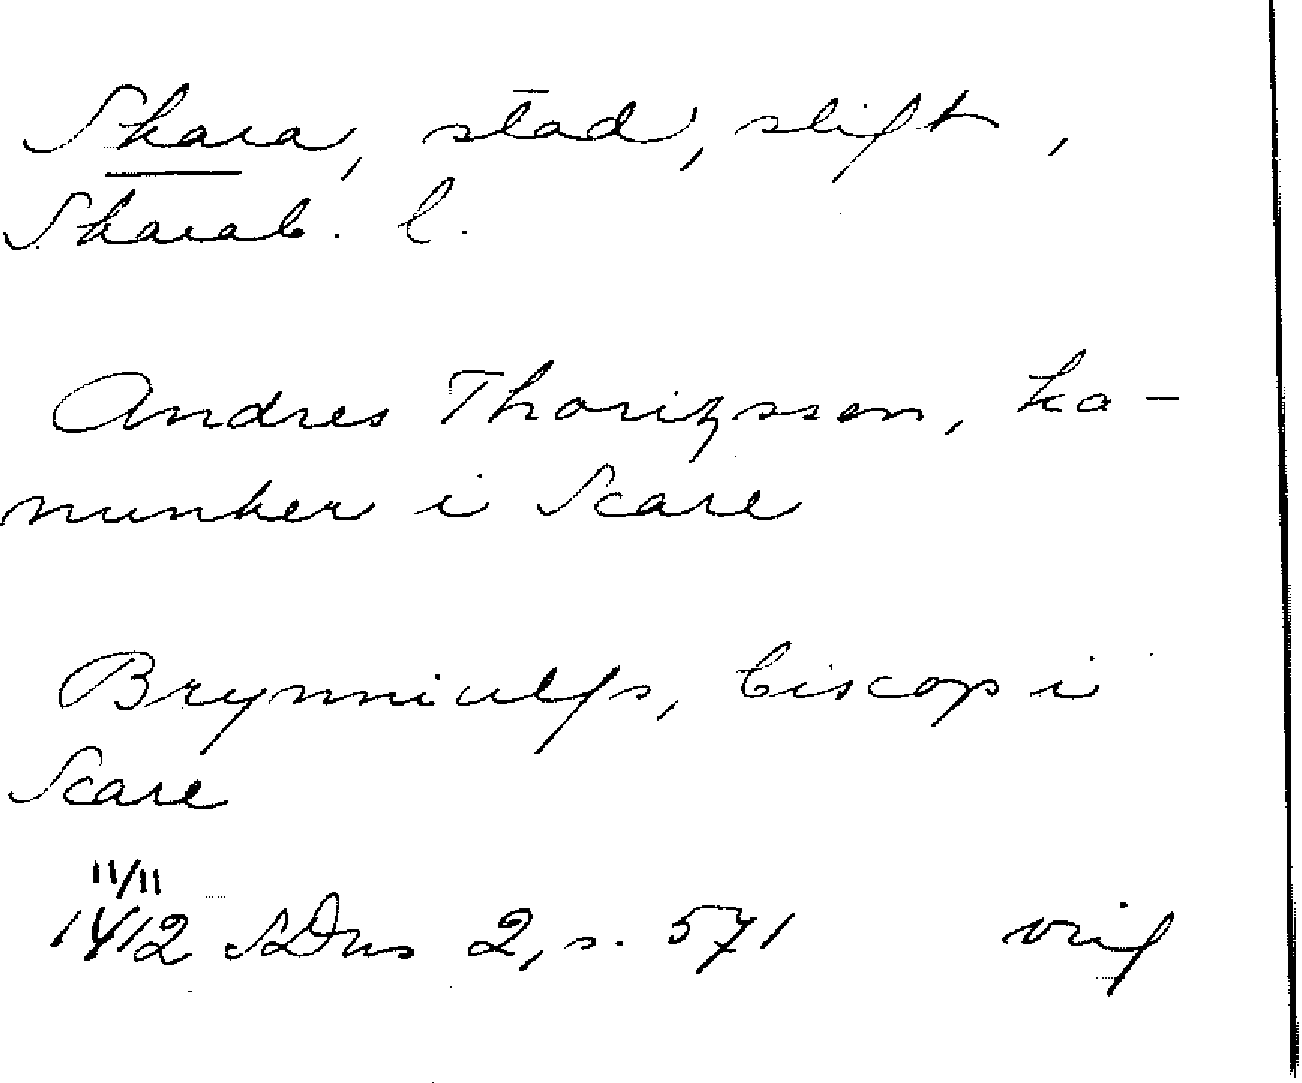 Skara, stad, stift,
Skarab. l.
Andres Thorizsson, ka-
nunker i Scare
Brynniulfs, biscop i
Scare
11/11
1412 SDns 2, s. 571 orig